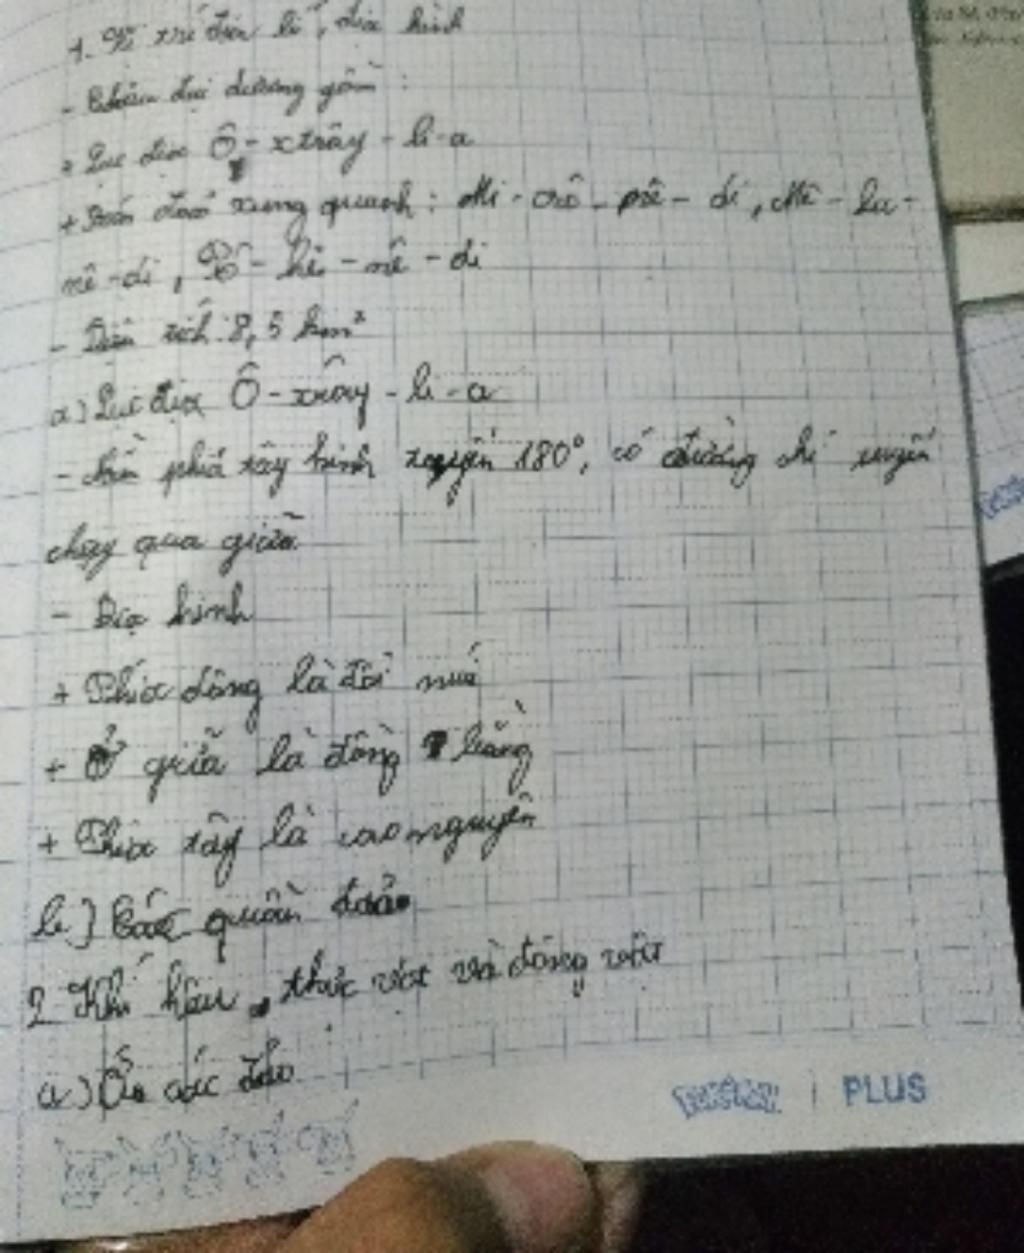 1. Vị trí địa lí, địa hình
- Châu đại dương gồm:
+ Lục địa Ô-xtrây-li-a
+ đảo xung quanh: Mi-crô-nê-di, Mê-la-
nê-di, Pô-li-nê-di
- Diện tích: 8,5 km²
a) Lục địa Ô-xtrây-li-a
- phía tây kinh tuyến 180°, có đường chí tuyến
chạy qua giữa
- Địa hình
+ Phía đông là đồi núi
+ Ở giữa là đồng bằng
+ Phía tây là cao nguyên
b) Các quần đảo
2. Khí hậu, thực vật và động vật
a) Ở các đảo
PLUS